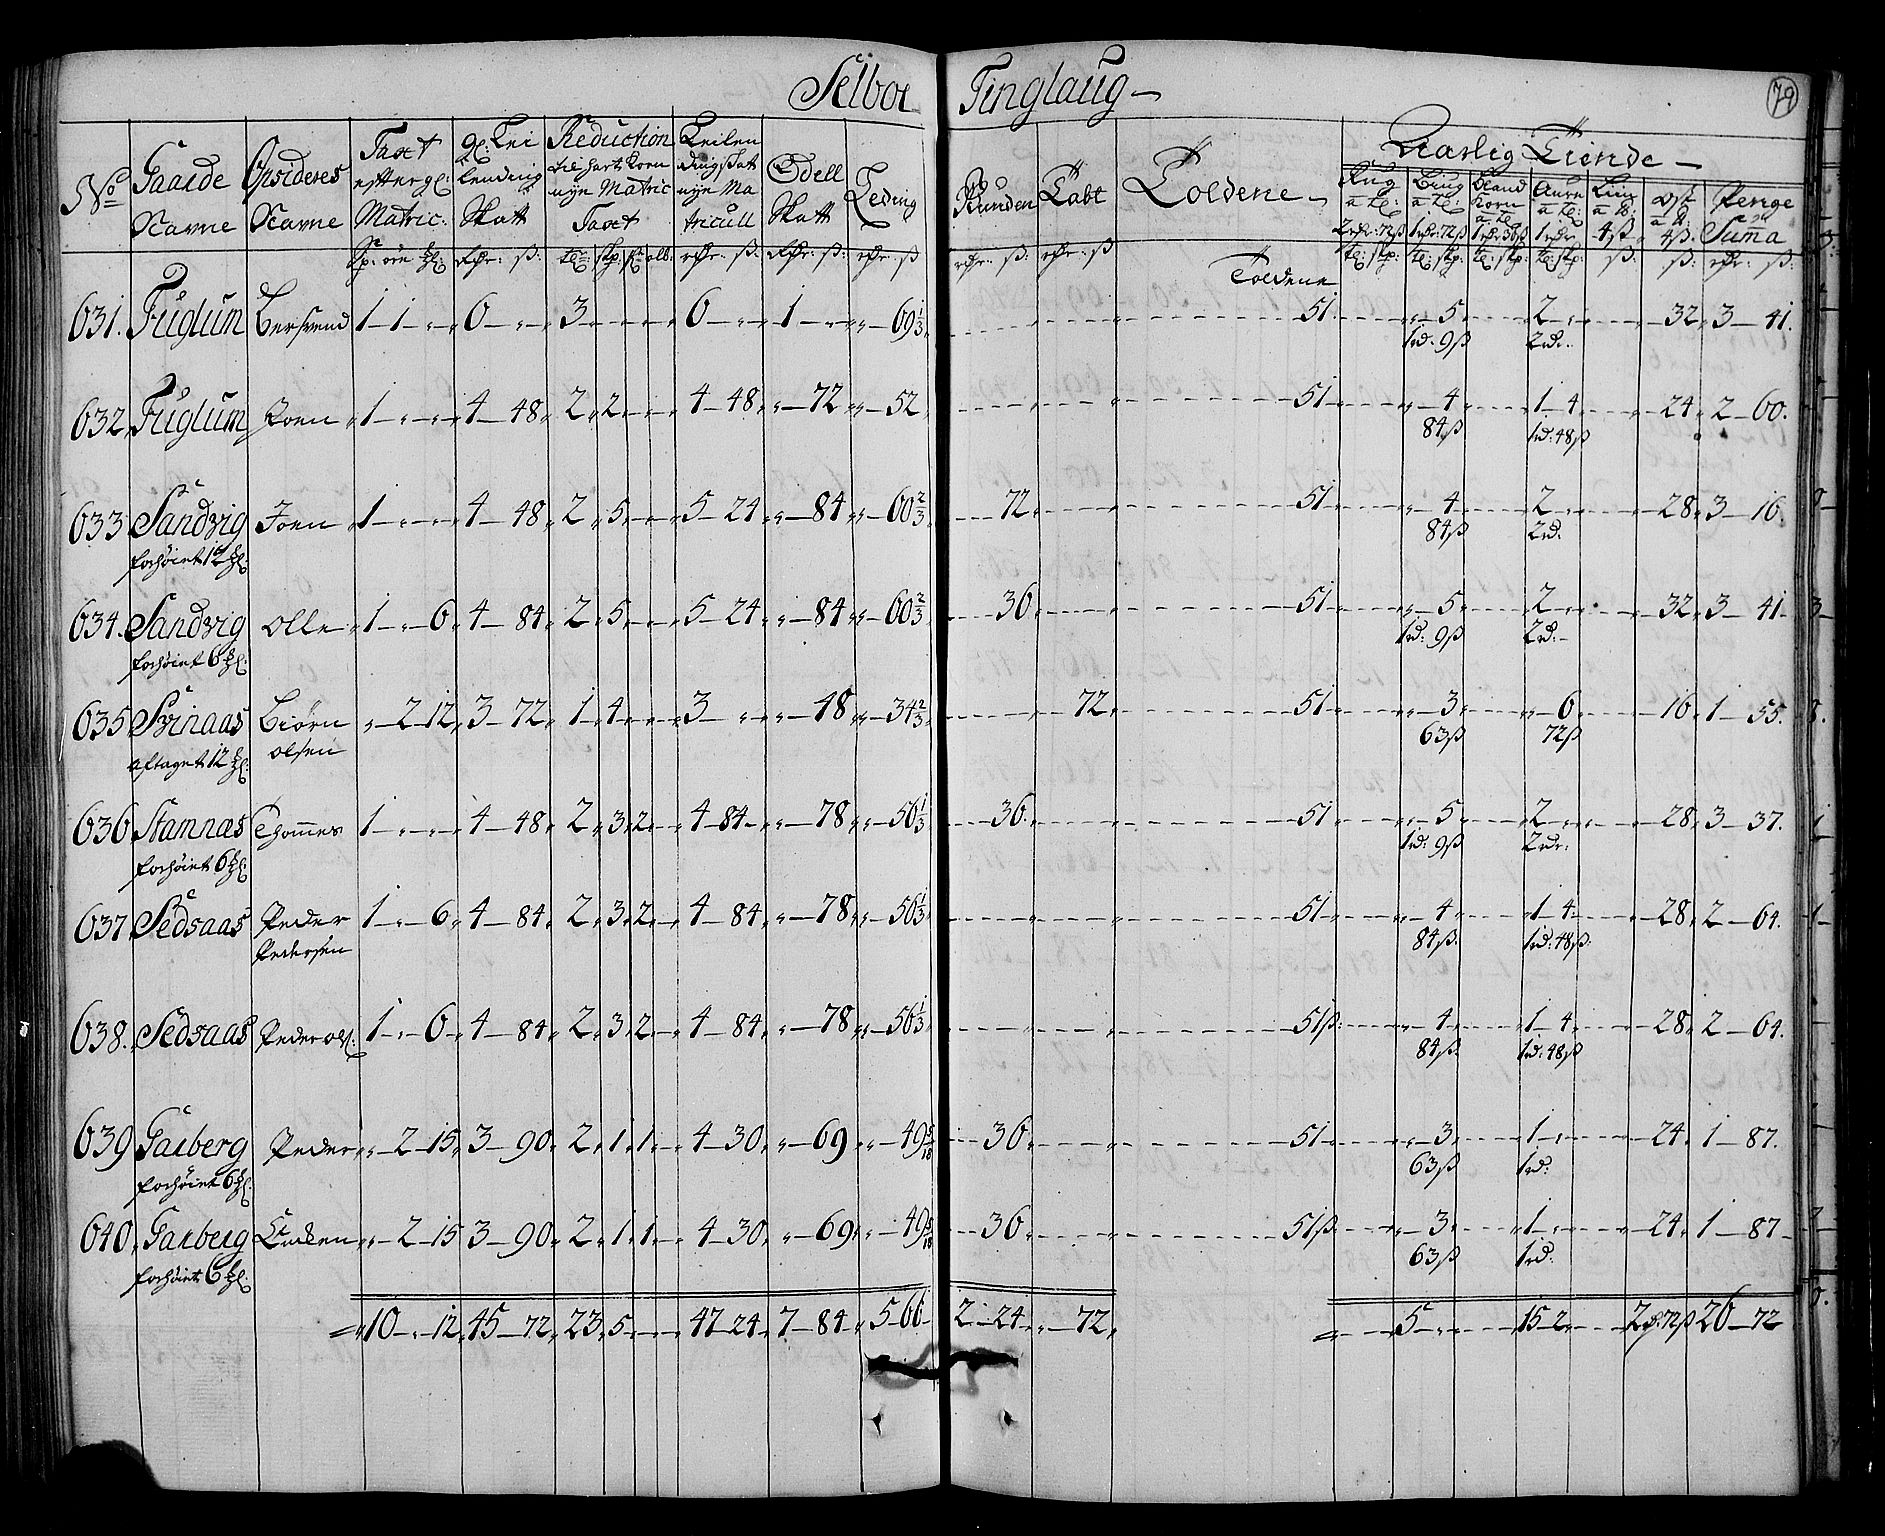 Selboe Tinglaug
79
No Gaarde Navne Opsideres Navne Taxt efter gl: Matric: gl: Lei lending Skatt Reduction til hart Korn nÿe Matric Taxt Leilen dings Skatt nÿe Ma tricull Odell Skatt Leding Vunden Tabt Toldene Aarlig Tiende
Rug a tl: 2 rdr: 72 ß Biug a tl: 1 rdr: 72 ß Bland Korn a tl: 1 rdr 36 ß Aure a tl: 1 rdr Ost 4 ß Penge Suma
Toldene
631. Fuglum Bersvend 1 1 6 3 6 1 69 1/3 51 5 2 32 3 41.
1 rd: 9 ß 2 rdr.
632 Fuglum Joen 1 4 48 2 2 4 48 72 52 51 4 1 4 24 2 60.
84 ß 1 rd: 48 ß
633 Sandvig Joen 1 4 48 2 5 5 24 84 60 2/3 72 51 4 2 28 3 16.
forhöiet 12 84 ß 2 rd.
634. Sandvig Olle 1 6 4 84 2 5 5 24 84 60 2/3 36 51 5 2 32 3 41
forhöiet 6 1 rd: 9 ß 2 rd:
635 Svinaas Biörn 2 12 3 72 1 4 3 48 34 2/3 72 51 3 6 16 1 55.
aftaget 12 olsen 63 ß 72 ß
636 Stamnæs Thommes 1 4 48 2 3 2 4 84 78 56 1/3 36 51 5 2 28 3 37.
forhöiet 6 1 rd: 9 ß 2 rdr.
637 Sedsaas Peder 1 6 4 84 2 3 2 4 84 78 56 1/3 51 4 1 4 28 2 64.
Pedersen 84 ß. 1 rd: 48 ß.
638. Sedsaas Peder ols: 1 6 4 84 2 3 2 4 84 78 56 1/3 51 ß 4 1 4 28 2 64.
84 ß. 1 rd: 48 ß
639 Garberg Peder 2 15 3 90 2 1 1 4 30 69 49 5/18 36 51 3 1 24 1 87.
forhöiet 6 63 ß 1 rd:
640. Garberg 2 15 3 90 2 1 1 4 30 69 49 5/18 36 51 ß 3 1 24 1 87
forhöiet 6 63 ß 1 rd.
10 12 45 72 23 5 47 24 7 84 5 66 2 24 72 5 15 2 2 72 ß 26 72